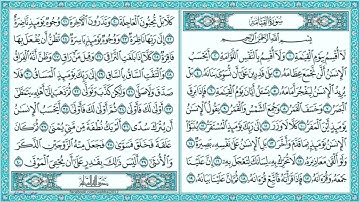 سُورَةُ القِيَامَةِ
بِسْمِ اللَّهِ الرَّحْمَٰنِ الرَّحِيمِ
لَا أُقْسِمُ بِيَوْمِ الْقِيَٰمَةِ ١ وَلَا أُقْسِمُ بِالنَّفْسِ اللَّوَّامَةِ ٢ أَيَحْسَبُ
الْإِنسَٰنُ أَلَّن نَّجْمَعَ عِظَامَهُ ٣ بَلَىٰ قَٰدِرِينَ عَلَىٰ أَن نُّسَوِّيَ بَنَانَهُ ٤ بَلْ يُرِيدُ
الْإِنسَٰنُ لِيَفْجُرَ أَمَامَهُ ٥ يَسْـَٔلُ أَيَّانَ يَوْمُ الْقِيَٰمَةِ ٦ فَإِذَا بَرِقَ
الْبَصَرُ ٧ وَخَسَفَ الْقَمَرُ ٨ وَجُمِعَ الشَّمْسُ وَالْقَمَرُ ٩ يَقُولُ
الْإِنسَٰنُ يَوْمَئِذٍ أَيْنَ الْمَفَرُّ ١٠ كَلَّا لَا وَزَرَ ١١ إِلَىٰ رَبِّكَ يَوْمَئِذٍ الْمُسْتَقَرُّ ١٢ يُنَبَّؤُا الْإِنسَٰنُ
يَوْمَئِذٍ بِمَا قَدَّمَ وَأَخَّرَ ١٣ بَلِ الْإِنسَٰنُ عَلَىٰ نَفْسِهِ بَصِيرَةٌ ١٤
وَلَوْ أَلْقَىٰ مَعَاذِيرَهُ ١٥ لَا تُحَرِّكْ بِهِ لِسَانَكَ لِتَعْجَلَ بِهِ ١٦ إِنَّ عَلَيْنَا
جَمْعَهُ وَقُرْءَانَهُ ١٧ فَإِذَا قَرَأْنَٰهُ فَاتَّبِعْ قُرْءَانَهُ ١٨ ثُمَّ إِنَّ عَلَيْنَا بَيَانَهُ ١٩
كَلَّا بَلْ تُحِبُّونَ الْعَاجِلَةَ ٢٠ وَتَذَرُونَ الْءَاخِرَةَ ٢١ وُجُوهٌ يَوْمَئِذٍ نَّاضِرَةٌ ٢٢
إِلَىٰ رَبِّهَا نَاظِرَةٌ ٢٣ وَوُجُوهٌ يَوْمَئِذٍ بَاسِرَةٌ ٢٤ تَظُنُّ أَن يُفْعَلَ بِهَا
فَاقِرَةٌ ٢٥ كَلَّا إِذَا بَلَغَتِ التَّرَاقِيَ ٢٦ وَقِيلَ مَنْ رَاقٍ ٢٧ وَظَنَّ أَنَّهُ الْفِرَاقُ ٢٨
وَالْتَفَّتِ السَّاقُ بِالسَّاقِ ٢٩ إِلَىٰ رَبِّكَ يَوْمَئِذٍ الْمَسَاقُ ٣٠ فَلَا صَدَّقَ
وَلَا صَلَّىٰ ٣١ وَلَٰكِن كَذَّبَ وَتَوَلَّىٰ ٣٢ ثُمَّ ذَهَبَ إِلَىٰ أَهْلِهِ يَتَمَطَّىٰ ٣٣
أَوْلَىٰ لَكَ فَأَوْلَىٰ ٣٤ ثُمَّ أَوْلَىٰ لَكَ فَأَوْلَىٰ ٣٥ أَيَحْسَبُ الْإِنسَٰنُ
أَن يُتْرَكَ سُدًى ٣٦ أَلَمْ يَكُ نُطْفَةً مِّن مَّنِيٍّ يُمْنَىٰ ٣٧ ثُمَّ كَانَ
عَلَقَةً فَخَلَقَ فَسَوَّىٰ ٣٨ فَجَعَلَ مِنْهُ الزَّوْجَيْنِ الذَّكَرَ
وَالْأُنثَىٰ ٣٩ أَلَيْسَ ذَٰلِكَ بِقَٰدِرٍ عَلَىٰ أَن يُحْيِيَ الْمَوْتَىٰ ٤٠